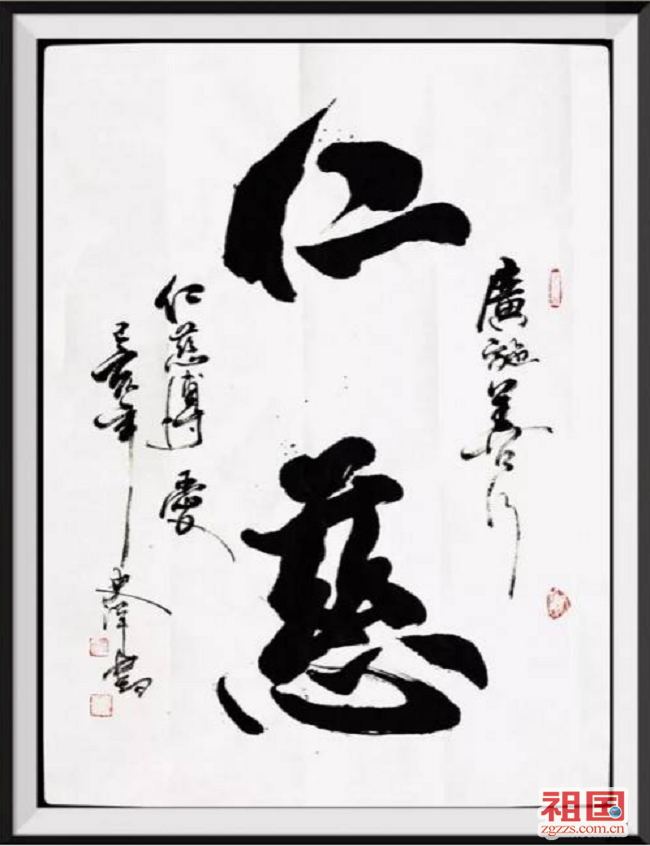 廣施善行
仁慈
仁慈博愛
己亥年
祖国
zgzzs.com.cn